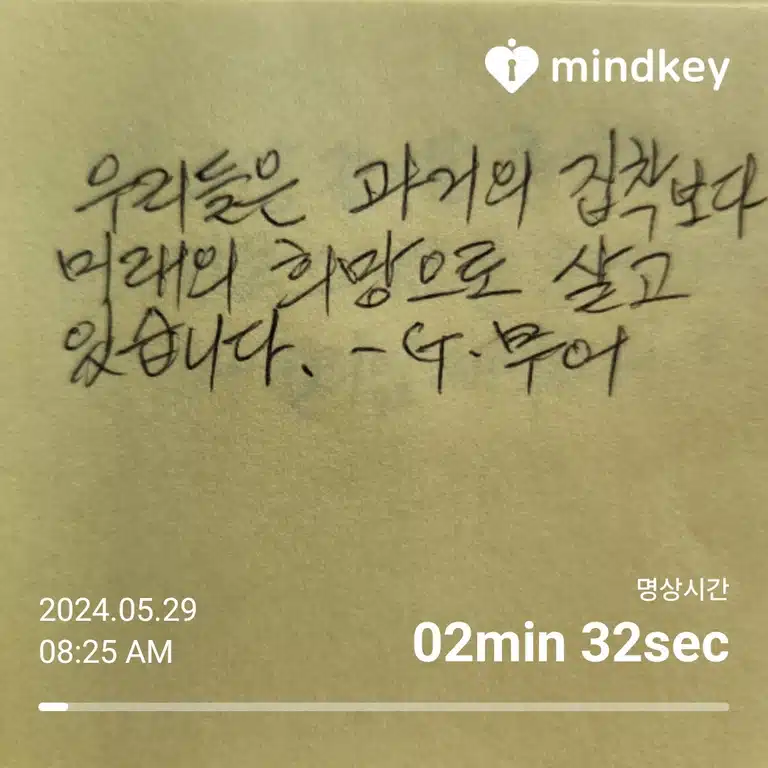 mindkey
우리들은 과거의 집착보다
미래의 희망으로 살고
있습니다. - G. 무어
명상시간
2024.05.29
02min 32sec
08:25 AM